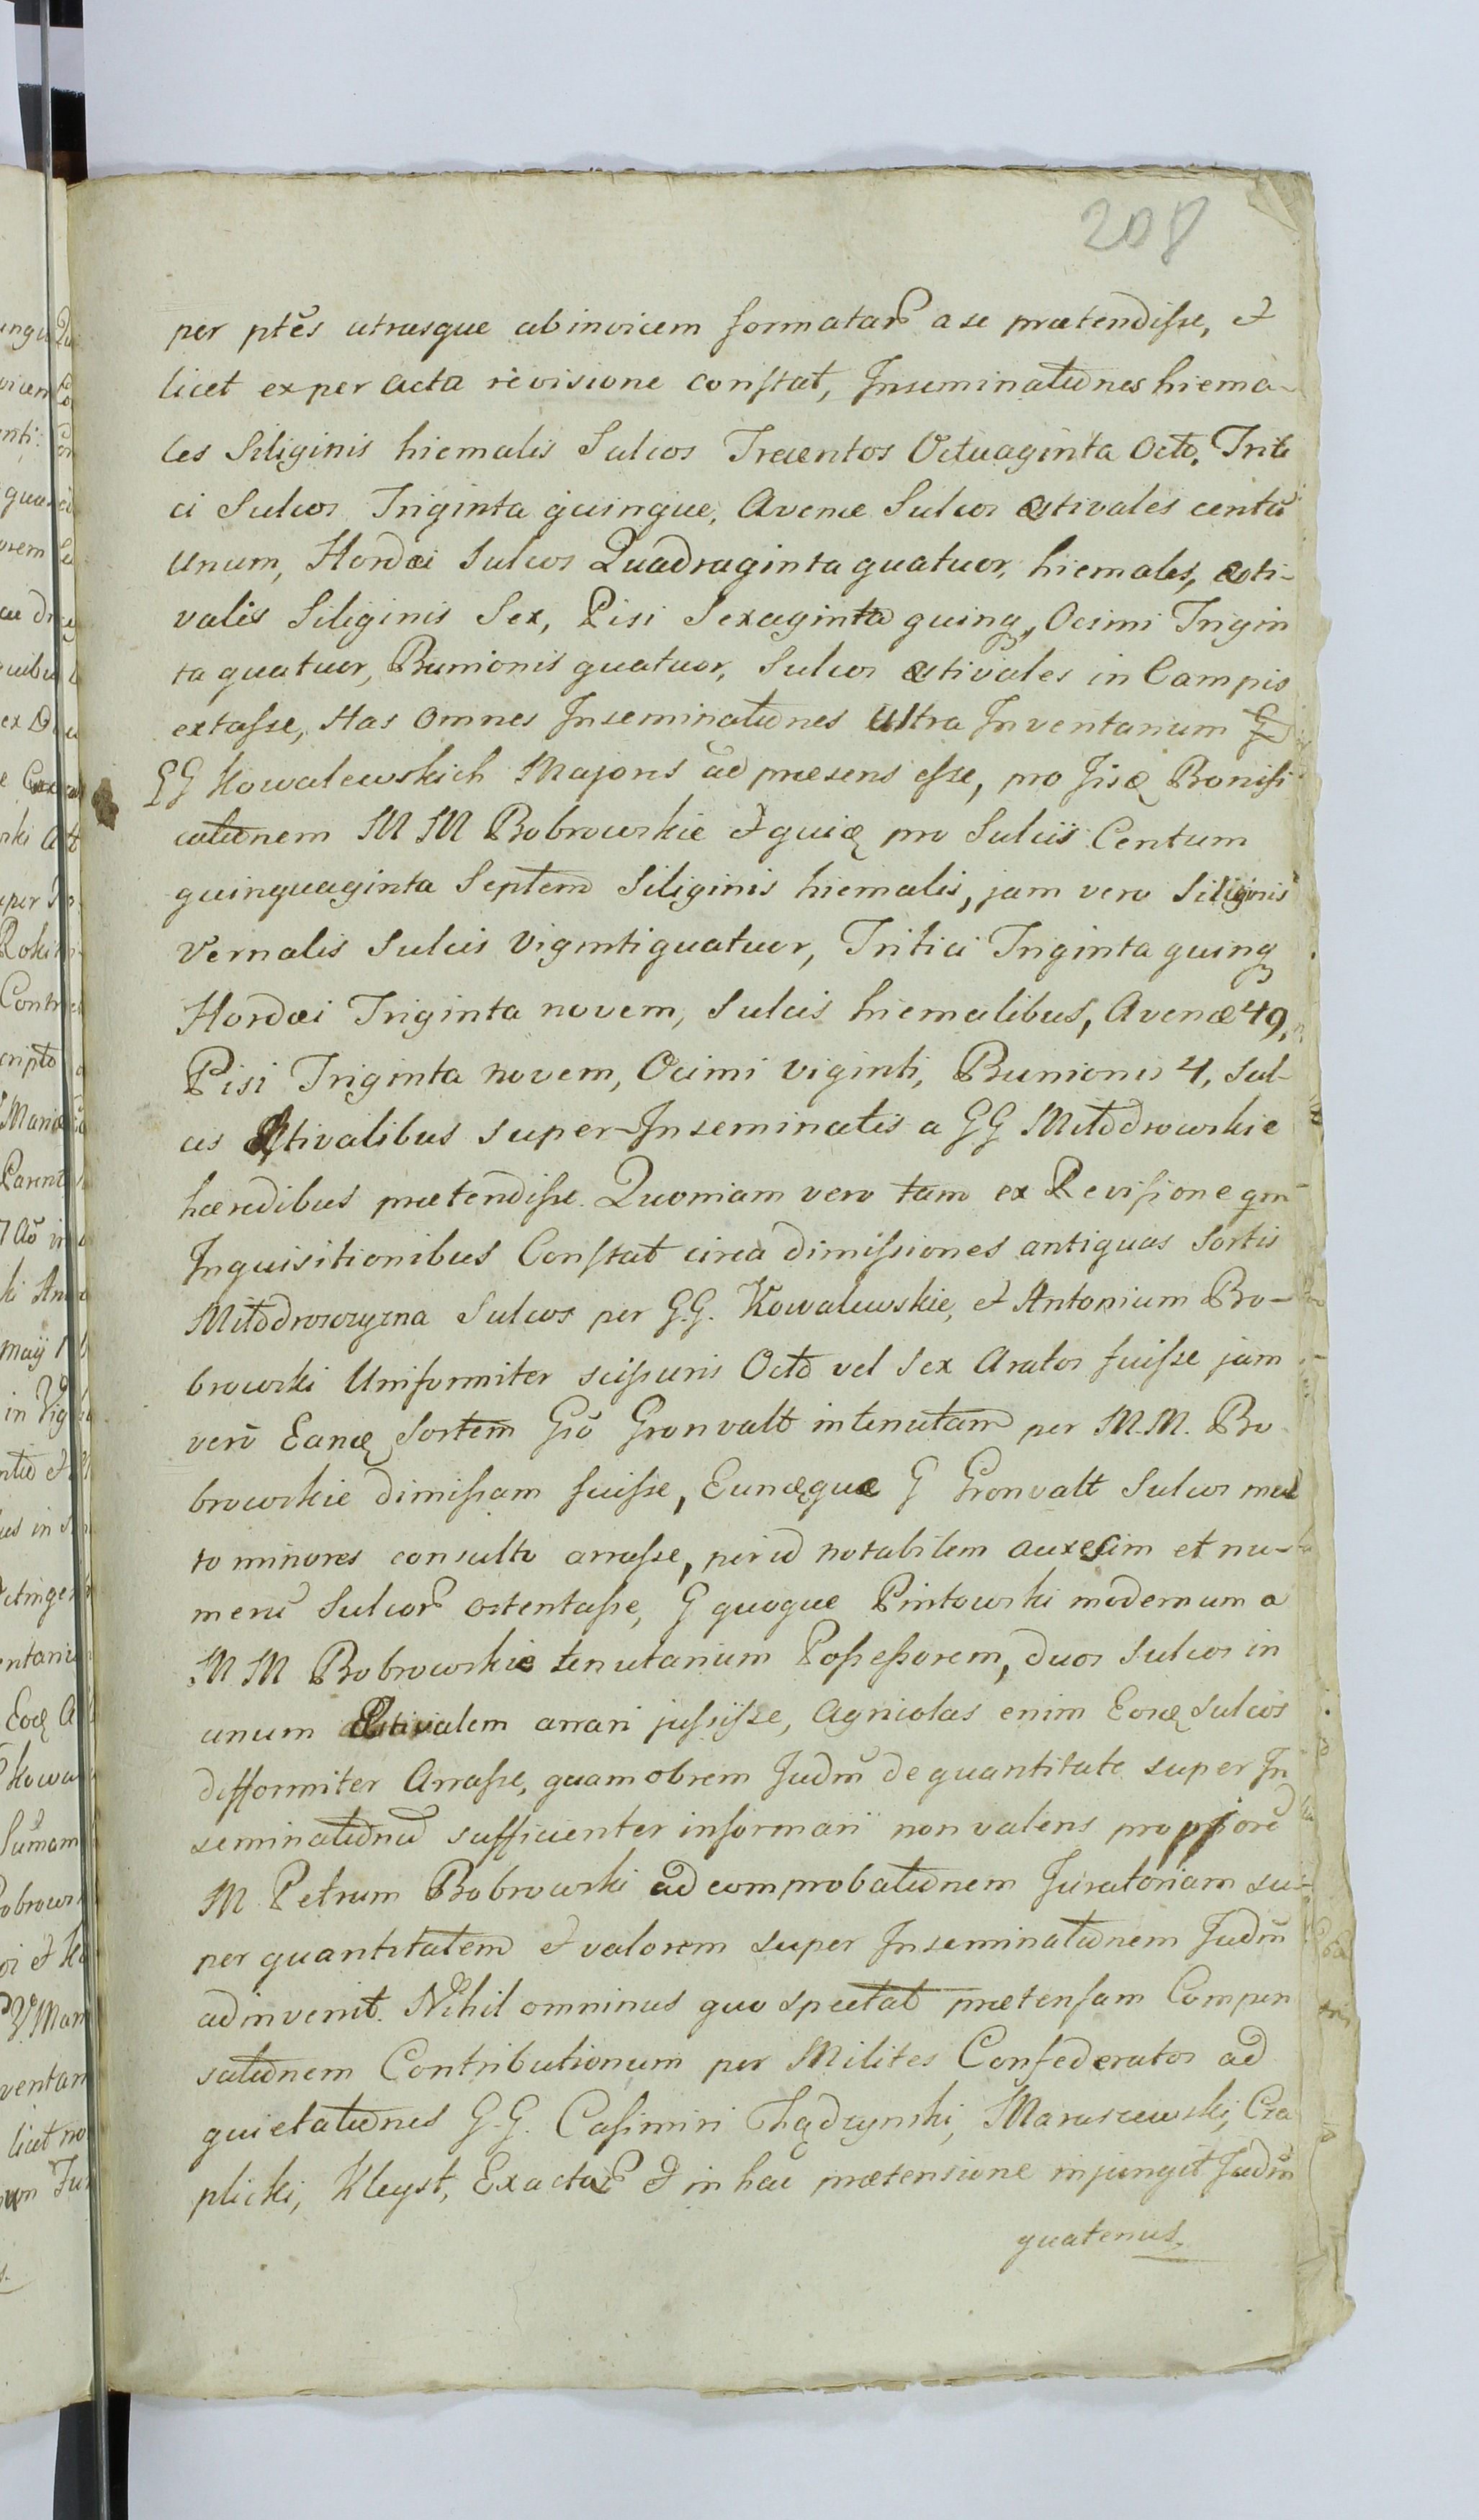 208
per ptēs utrasque abinvicem formatar̄ a se prætendisse, et
licet ex per acta revisione constat, Inseminationes hiema-
les Siliginis hiemalis Sulcos Trecentos Octuaginta Octo, Triti
ci Sulcos Triginta quinque, Avenæ Sulcos æstivales centū
Unum, Hordæi Sulcos Quadraginta quatuor, hiemales, æsti-
valis Siliginis Sex, Pisi Sexaginta quinq, Ocimi Trigin
ta quatuor, Bunionis quatuor, Sulcos æstivales in Campis
extasse, Has Omnes Inseminationes Ultra Inventarium
GG Kowalewskich Majoris ad præsens esse, pro Bonifi
cationem M M Bobrowskie et pro Sulcis Centum
quinquaginta Septem Siliginis hiemalis, jam vero Siliginis
Vernalis Sulcis Vigintiquatuor, Tritici Triginta quinq
Hordæi Triginta novem, Sulcis hiemalibus, Avenæ 49,
Pisi Triginta novem, Ocimi viginti, Bunionis 4, Sul-
cis Æstivalibus super-Inseminatis a GG Mitodrowskie
hæredibus prætendisse. Quoniam vero tam ex Revisione qm
Inquisitionibus Constat circa dimissiones antiquas Sortis
Mitodrowczyzna Sulcos per G.G. Kowalewskie, et Antonium Bo-
browski Uniformiter scissuris Octo vel Sex Aratos fuisse jam
verō Sortem Gsō Gronvalt in tenutam per M.M. Bo
browskie dimissam fuisse, G Gronvalt Sulcos mul
to minores consulto arrasse, per id notabilem auxesim et nu-
merū Sulcor̄ ostentasse, G quoque Pintowski modernum a
M M Bobrowskie tenutarium Possessorem, duos Sulcos in
unum Æstivalem arrari jussisse, Agricolas enim Sulcos
difformiter Arrasse, quamobrem Judm̄ de quantitate super In
seminationū sufficienter informari non valens propriorē
M Petrum Bobrowski ad comprobationem Juratoriam su-
per quantitatem et valorem super Inseminationem Judm̄
adinvenit. Nihil omninus quo spectat prætensam Compen
sationem Contributionum per Milites Confederatos ad
quietationes G.G. Casimiri Thądzynski, Maruszewski, Cza
plicki, Kleyst, Exactar̄ et in hac prætensione injungit Judm̄
quatenus.